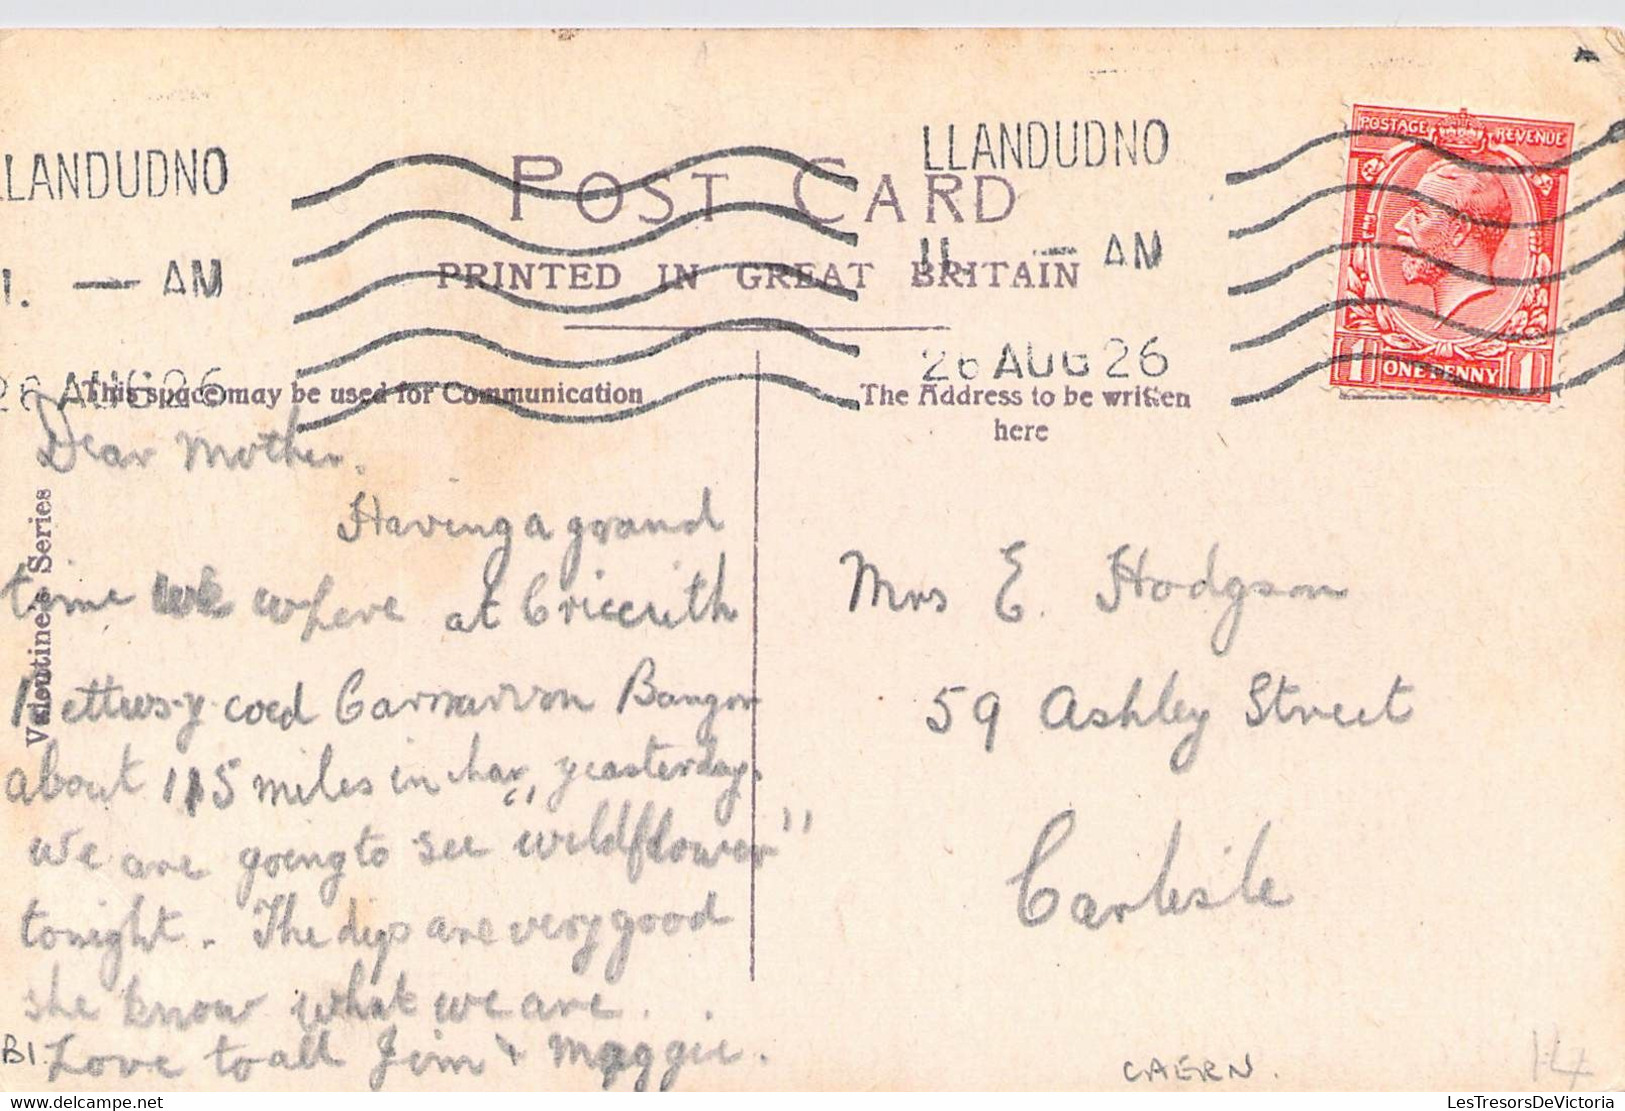 LLANDUDNO
LLANDUDNO
POST CARD
11. — AM
PRINTED IN GREAT BRITAIN
26 AUG 26
26 AUG 26
POSTAGE REVENUE
1 ONE PENNY 1
This space may be used for Communication
The Address to be written
here
Valentine's Series
Dear Mother.
Having a grand
time we where at Criccrith
Bettws-y-coed Carnarvon Bangor
about 115 miles in char, yeasterday.
we are going to see "wildflower"
tonight. The digs are very good
she know what we are.
Love to all Jim + Maggie.
Mrs E. Hodgson
59 Ashley Street
Carlisle
B1.
CAERN.
14
LesTresorsDeVictoria.com
LesTresorsDeVictoria